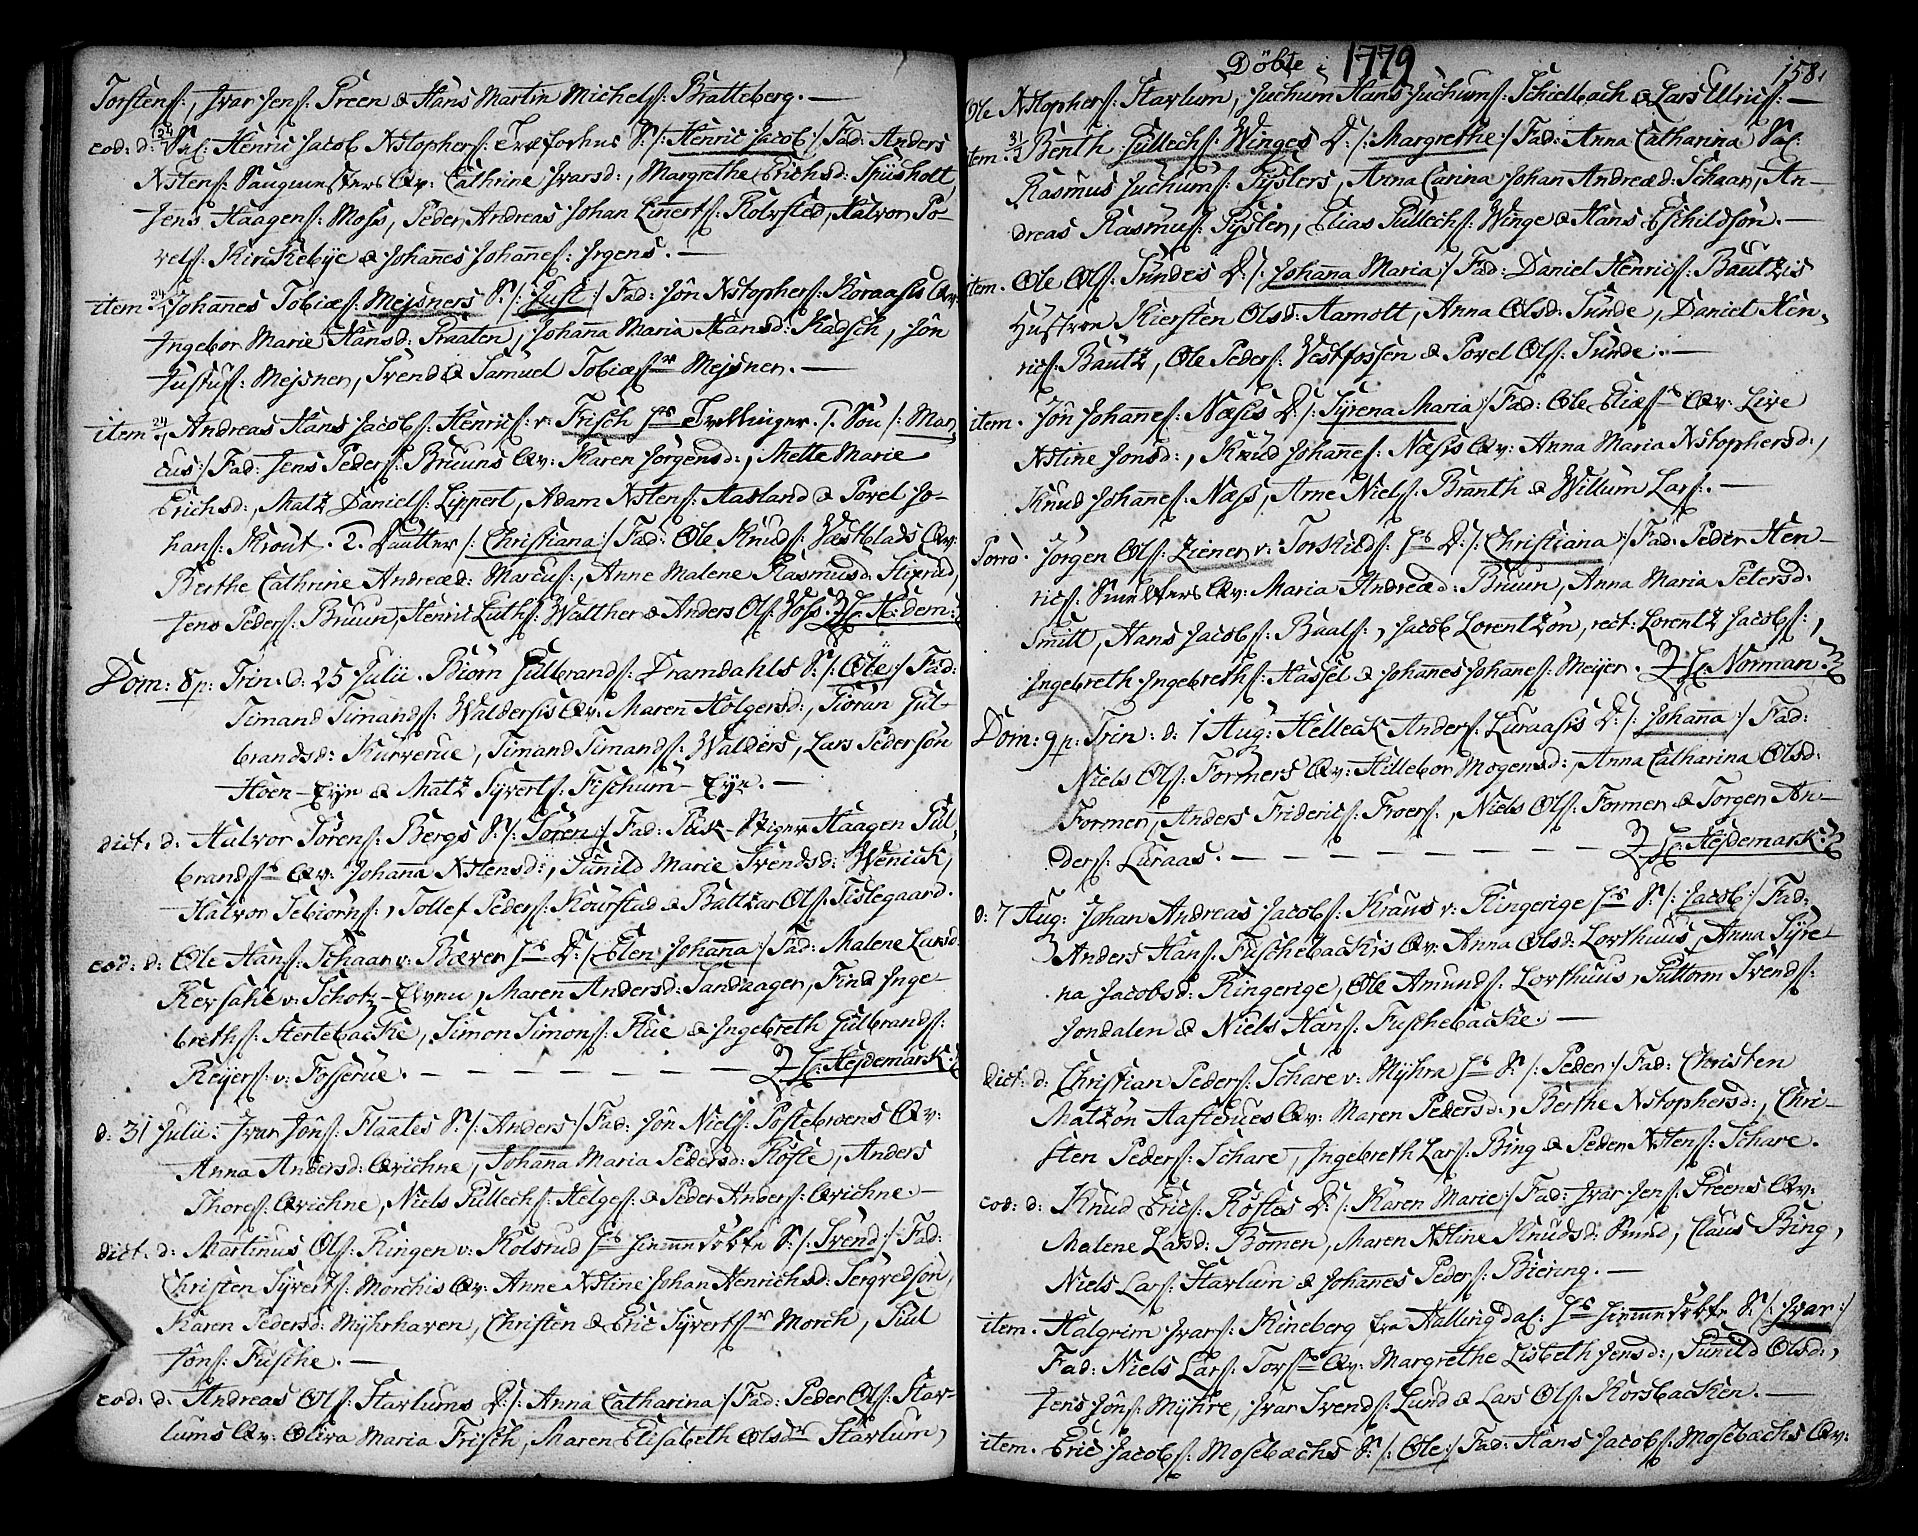 Torstens:, Ivar Jens: Preen & Hans Martin Michels: Bratteberg. —
eod: d: 24/7 Sal: Henric Jacob Xstophers: S: /: Henric Jacob :/ Fad: Anders
Xstens: Saugmesters Qv: Cathrine Ivarsd:, Margrethe Erichsd: Spüsholt,
Jens Haagens: Moss, Peder Andreas Johan Linerts: Rolvsted, Halvor Po-
vels: Kirkebÿe & Johañes Johañes: Irgens. —
item. 24/7 Johañes Tobiæs: Mejsners S: /: Just :/ Fad: Jôn Xstophers: Koraasis Qv:
Ingebor Marie Hansd: Praaten, Johaña Maria Hansd: Kadsch, Jôn
Justus: Mejsner, Svend & Samuel Tobiæs: Mejsner. —
item 24/7, Andreas Hans Jacobs: Henrics: v: Frisch Hs Tvillinger. 1. Sön /: Mar-
cus :/ Fad: Jens Peders: Bruuns Qv: Karen Jörgensd:, Mette Marie
Erichsd:, Matz Daniels: Lippert, Adam Xstens: Aasland & Povel Jo-
hans: Krout. 2. Daatter /: Christiana :/ Fad: Ole Knuds: Væstblads Qv:
Berthe Cathrine Andreæd: Marcus:, Anne Malene Rasmusd: Hixrud,
Jens Peders: Bruun, Henric Luths: Walther & Anders Ols: Voss. H: dem:
Dom: 8 p: Trin: d: 25 Julii. Biörn Gulbrands: Dramdahls S: /: Ole :/ Fad:
Timand Timands: Waldersis Qv: Maren Holgersd:, Giöran Gul-
brandsd: Kurverue, Timand Timands: Walders, Lars Pedersön
Hoen-Eÿe & Matz Syverts: Fischum-Eÿe. —
dict. d: Halvor Sörens: Bergs S: /: Sören :/ Fad: Puk-Stiger Haagen Gul-
brands: Qv: Johaña Xstensd:, Gunild Marie Svendsd: Wenick,
Halvor Tebiörns:, Tollef Peders: Kourstad & Baltzar Ols: Tislegaard.
eod: d: Ole Hans: Schaar v: Bæver Hs D: /: Elen Johaña :/ Fad: Malene Larsd:
Revsahl v: Schotz-Elven, Maren Andersd: Sandaager, Find Inge-
breths: Hertebache, Simon Simons: Hue & Ingebreth Gulbrands:
Reÿers: v: Fosserue. — — — — — H: Hejdemark:
d: 31 Julii: Ivar Jôns: Flaates S: /: Anders :/ Fad: Jôn Niels: Postebroens Qv:
Anna Andersd: Qvichne, Johaña Maria Pedersd: Röste, Anders
Thores: Qvichne, Niels Gullechs: Helges: & Peder Anders: Qvichne —
dict. d: Martinus Ols: Ringen v: Kolsrud Hs hiemmedöbte S: /: Svend :/ Fad:
Christen Syverts: Morchis Qv: Anne Xstine Johan Henrichsd: Sergredsön,
Karen Pedersd: Mÿhrhaven, Christen & Eric Syverts: Morch, Giul
Jôns: Fusche. —
eod: d: Andreas Ols: Starlums D: /: Anna Catharina :/ Fad: Peder Ols: Star-
lums Qv: Oliva Maria Frisch, Maren Elisabeth Olsdr Starlum,
Döbte: 1779 158.
Ole Xstophers: Starlum, Juchum Hans Juchums: Schielbach & Lars Ulrics: —
item. 31/7 Benth Gullechs: Winges D: /: Margrethe :/ Fad: Anna Catharina Sal:
Rasmus Juchums: Gÿslers, Anna Canna Johan Andreæd: Schaar, An-
dreas Rasmus: Gÿsler, Elias Gullechs: Winge & Hans Eschildsön. —
item. Ole Ols: Sundes D: /: Johaña Maria :/ Fad: Daniel Henrics: Bautzis
Hustroe Kiersten Olsd: Aamott, Anna Olsd: Sunde, Daniel Hen-
rics: Bautz, Ole Peders: Vestfossen & Povel Ols: Sunde. —
item. Jôn Johañes: Næsis D: /: Syrena Maria :/ Fad: Ole Eliæs: Qv: Live
Xstine Jonsd:, Knud Johañes: Næsis Qv: Anna Maria Xstophersd:,
Knud Johañes: Næss, Arne Niels: Branth & Willum Lars: —
Porrò. Jörgen Ols: Ziener v: Torskilds: Hs D: /: Christiana :/ Fad: Peder Hen-
rics: Smelters Qv: Maria Andreæd: Bruun, Anna Maria Petersd:
Smitt, Hans Jacobs: Buals:, Jacob Lorentzön, rect: Lorentz Jacobs:,
Ingebreth Ingebreths: Hassel & Johañes Johañes: Meÿer. H: Norman:
Dom: 9 p: Trin: d: 1 Aug: Helleck Anders: Luraasis D: /: Johaña :/ Fad:
Niels Ols: Formers Qv: Hillebor Mogensd:, Anna Catharina Olsd:
Former, Anders Friderics: Froers:, Niels Ols: Former & Torger An-
ders: Luraas. — — — — — — — H: Hejdemark:
d: 7 Aug: Johan Andreas Jacobs: Kraus v: Ringerige Hs S: /: Jacob :/ Fad:
Anders Hans: Fuschebackis Qv: Anna Olsd: Lorthuus, Anna Syre-
na Jacobsd: Ringerige, Ole Amunds: Lorthuus, Guttorm Svends:
Jondalen & Niels Hans: Fuschebacke. —
dict: d: Christian Peders: Schare v: Mÿhra Hs S: /: Peder :/ Fad: Christen
Matzön Aasterues Qv: Maren Pedersd:, Berthe Xstophersd:, Chri-
sten Peders: Schare, Ingebreth Lars: Bing & Peder Xstens: Schare.
eod: d: Knud Erics: Röstes D: /: Karen Marie :/ Fad: Ivar Jens: Preens Qv:
Malene Larsd: Bömen, Maren Xstine Knudsd: Smed, Claus Bing,
Niels Lars: Starlum & Johañes Peders: Biering. —
item. Halgrim Ivars: Rineberg fra Hallingdal: Hs hiemmedöbte S: /: Ivar :/
Fad: Niels Lars: Torss Qv: Margrethe Lisbeth Jensd:, Gunild Olsd:,
Jens Jôns: Mÿhre, Ivar Svends: Lund & Lars Ols: Korsbacken. —
item. Eric Jacobs: Mosebachs S: /: Ole :/ Fad: Hans Jacobs: Mosebachs Qv: